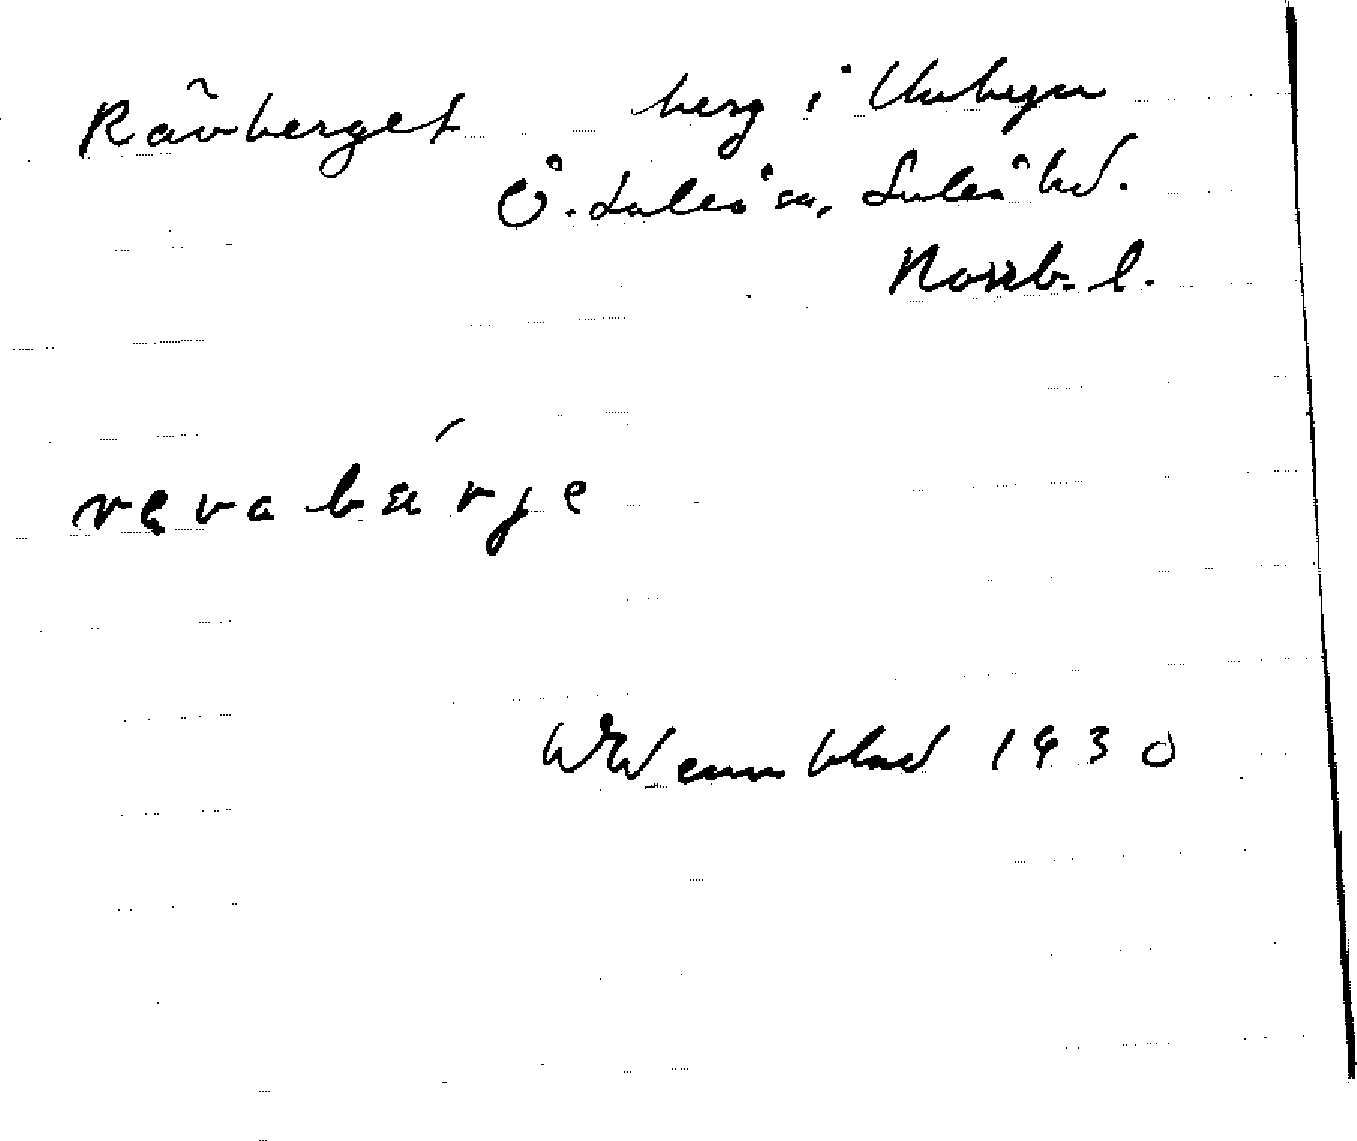 Rävberget berg i Unbyn
Ö. Luleå sn, Luleå hd.
Norrb. l.
ręvabærje
W Wennblad 1930